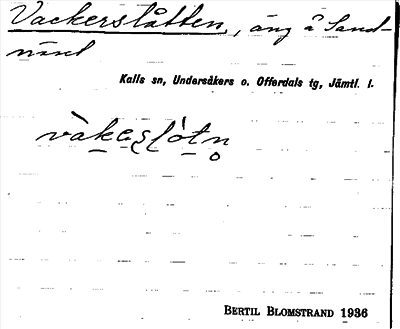 Vackerslåtten, äng å Sand-
näset
Kalls sn, Undersåkers o. Offerdals tg, Jämtl. l.
vàkeslòtn̥
BERTIL BLOMSTRAND 1936